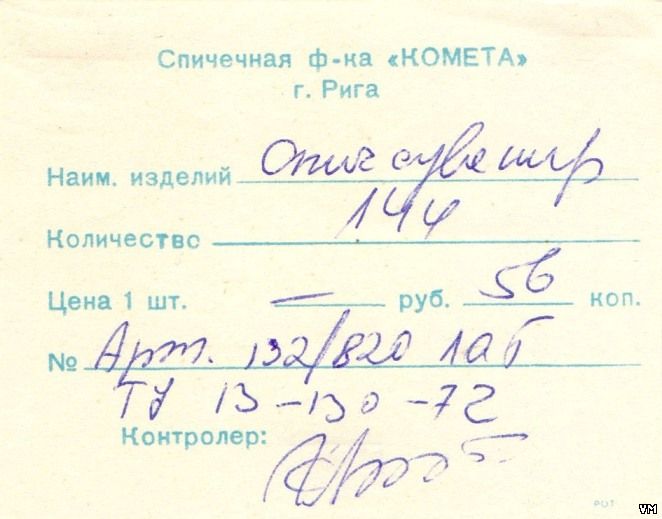 Спичечная ф-ка «КОМЕТА»
г. Рига
Наим. изделий Спич сувенир
Количество 144
Цена 1 шт. — руб. 56 коп.
№ Арт. 132/820 Лат
ТУ 13-130-72
Контролер:
VM